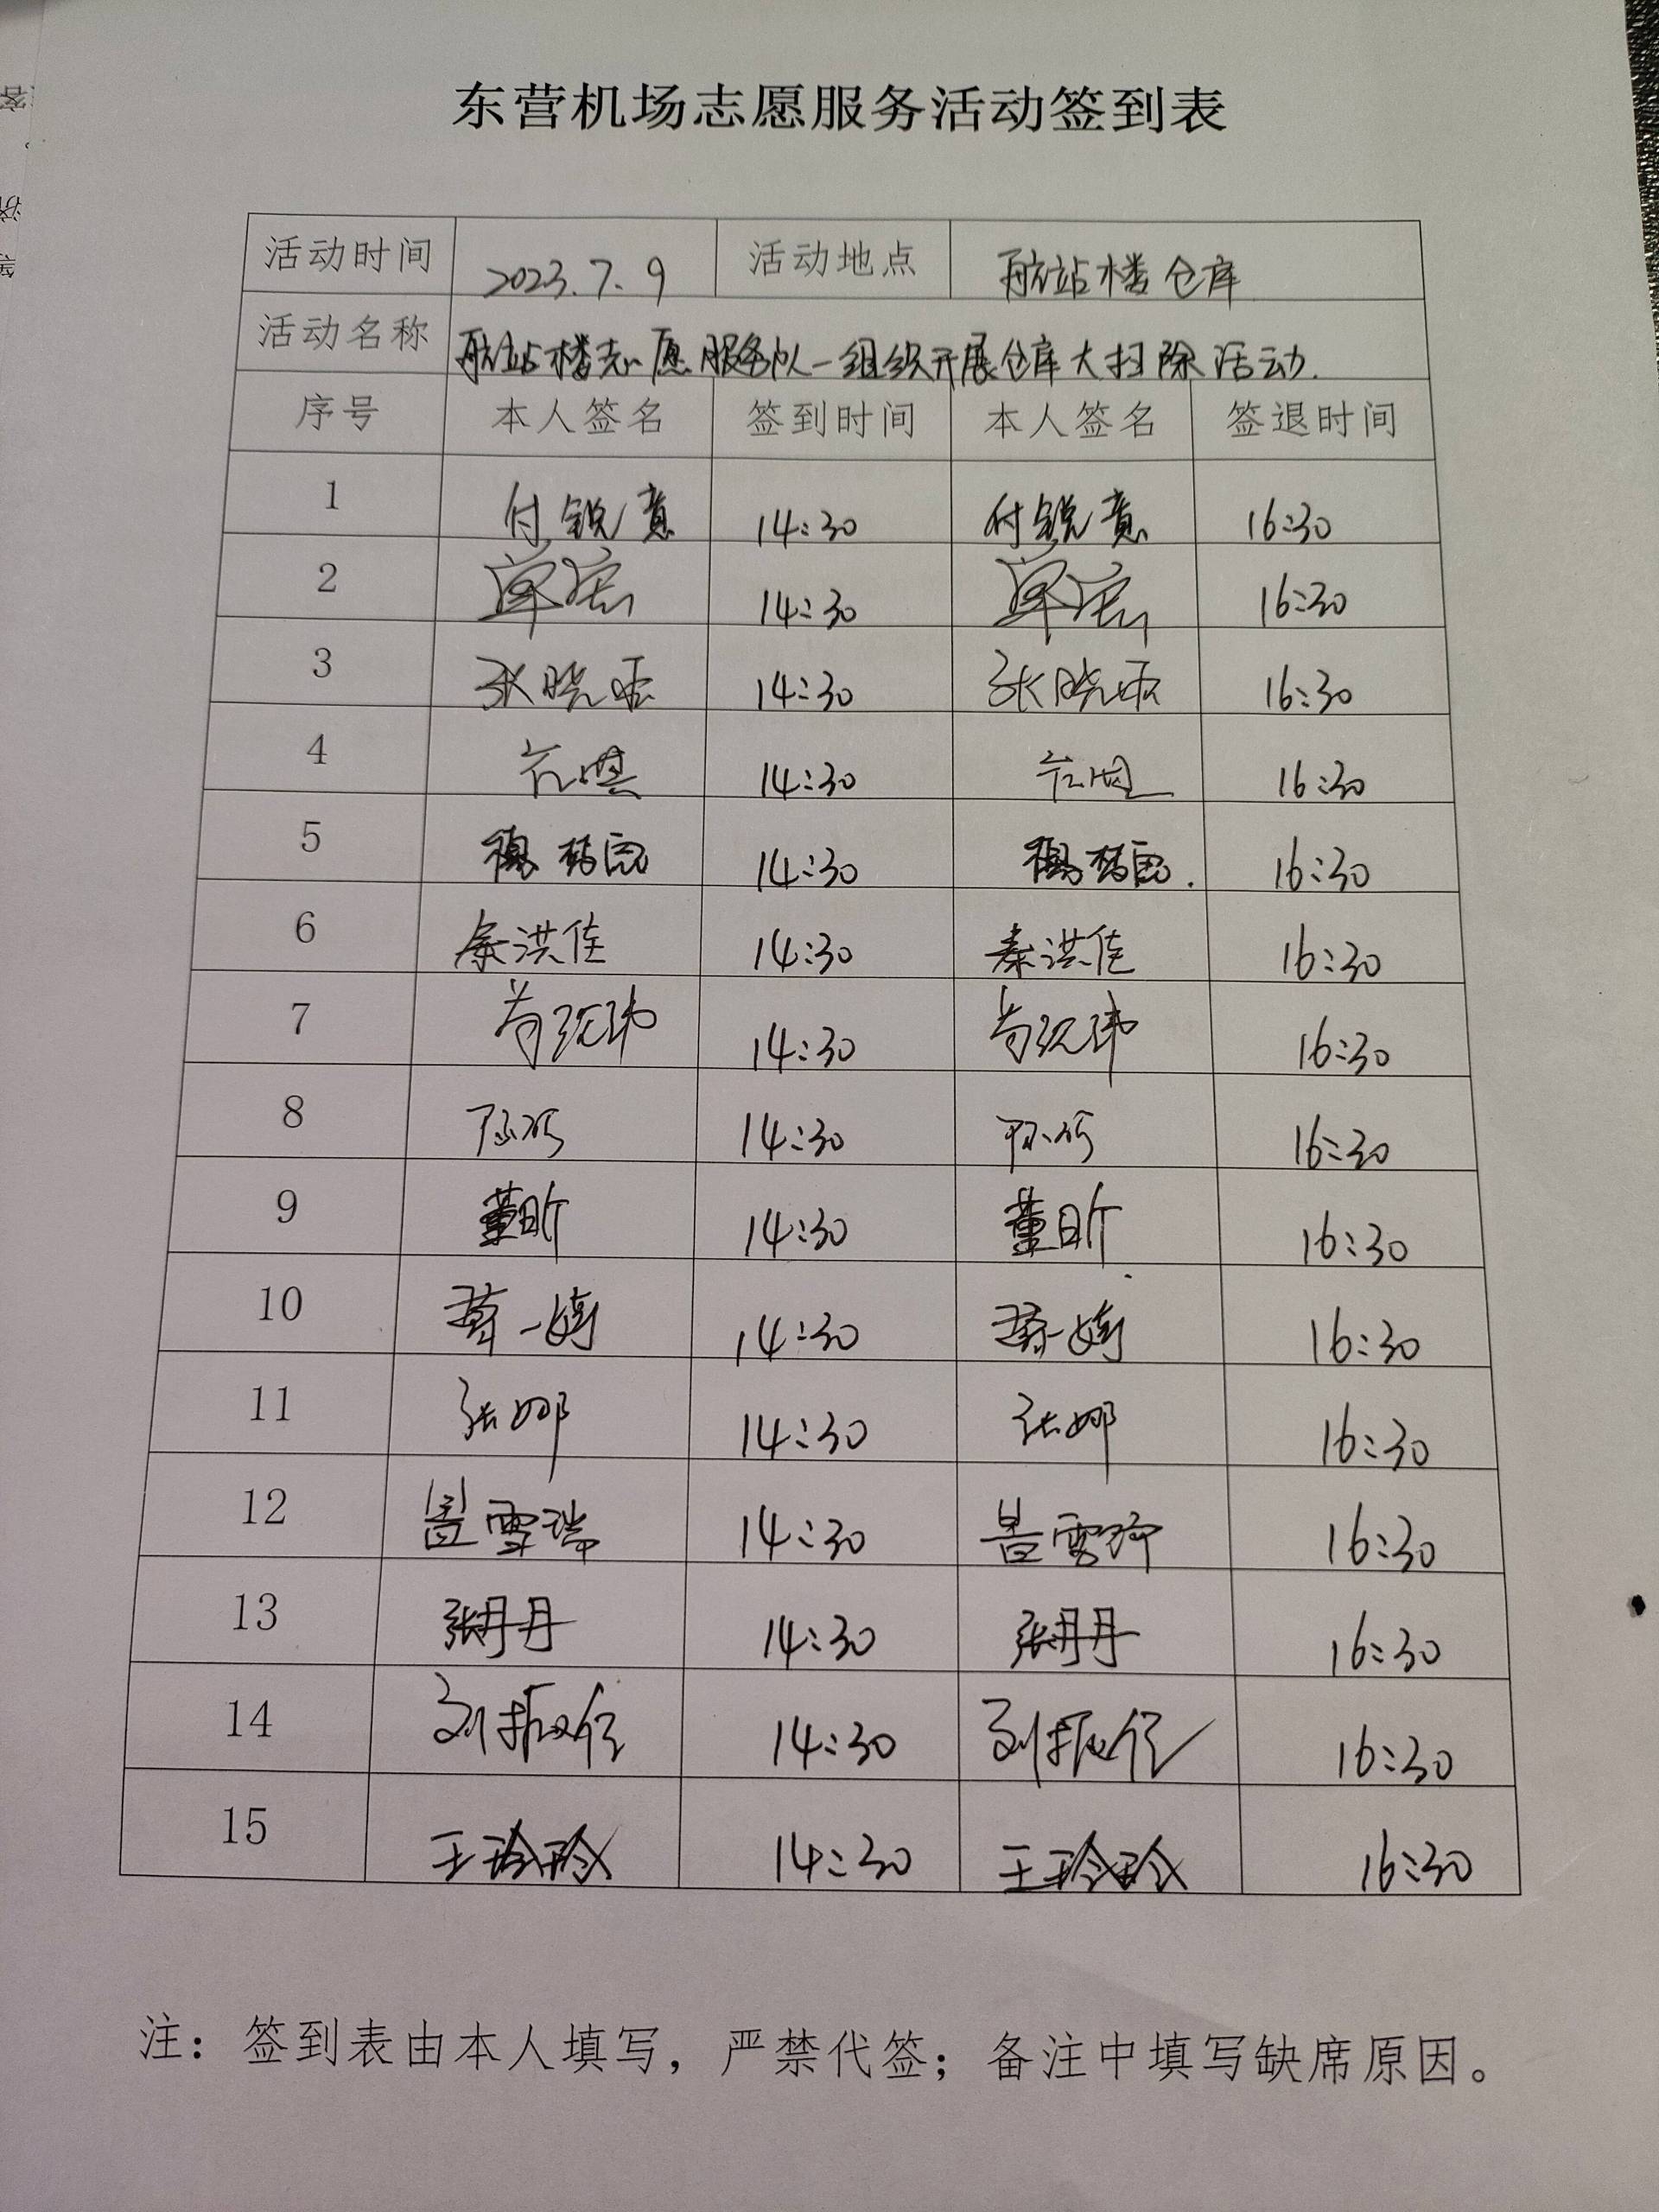 东营机场志愿服务活动签到表
活动时间 2023.7.9 活动地点 航站楼仓库
活动名称 航站楼志愿服务队一组织开展仓库大扫除活动.
序号 本人签名 签到时间 本人签名 签退时间
1 付锐意 14:30 付锐意 16:30
2 14:30 16:30
3 张晓雨 14:30 张晓雨 16:30
4 14:30 16:30
5 14:30 16:30
6 秦洪佳 14:30 秦洪佳 16:30
7 14:30 16:30
8 14:30 16:30
9 董昕 14:30 董昕 16:30
10 14:30 16:30
11 张娜 14:30 张娜 16:30
12 14:30 16:30
13 张丹丹 14:30 张丹丹 16:30
14 刘振 14:30 刘振 16:30
15 王玲玲 14:30 王玲玲 16:30
注：签到表由本人填写，严禁代签；备注中填写缺席原因。